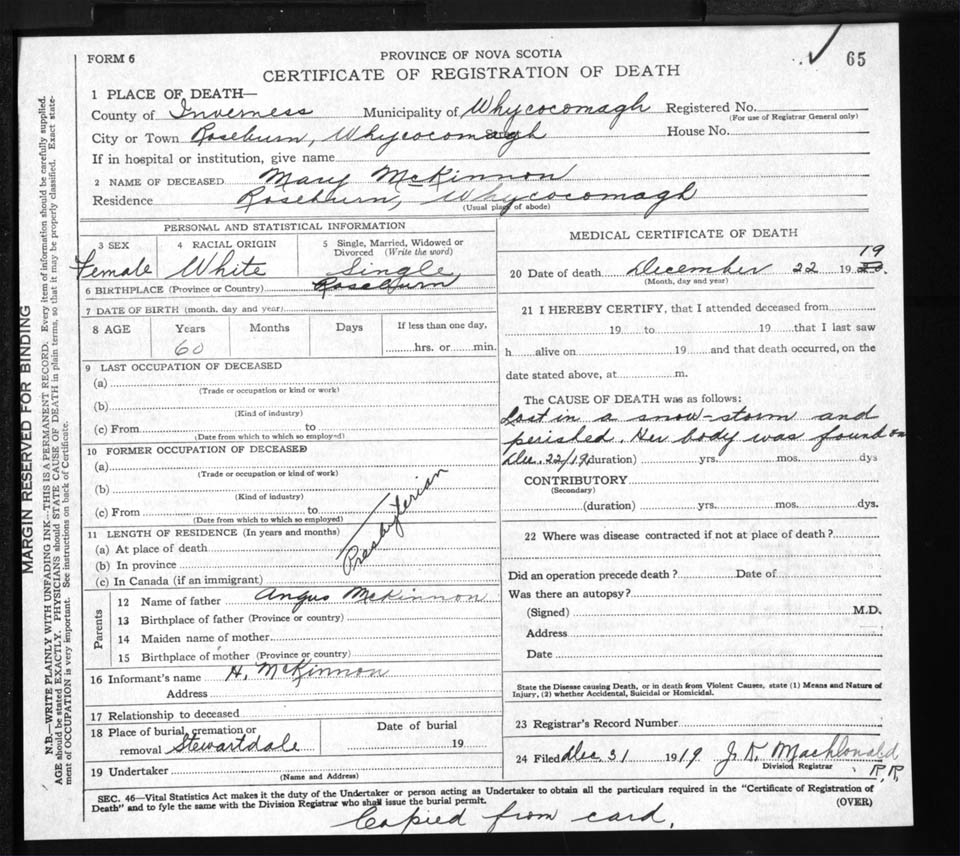 65
FORM 6
PROVINCE OF NOVA SCOTIA
CERTIFICATE OF REGISTRATION OF DEATH
1 PLACE OF DEATH—
County of Inverness Municipality of Whycocomagh Registered No.
(For use of Registrar General only)
City or Town Roseburn, Whycocomagh House No.
If in hospital or institution, give name
2 NAME OF DECEASED Mary McKinnon
Residence Roseburn, Whycocomagh
(Usual place of abode)
PERSONAL AND STATISTICAL INFORMATION
3 SEX 4 RACIAL ORIGIN 5 Single, Married, Widowed or Divorced (Write the word)
Female White Single
6 BIRTHPLACE (Province or Country) Roseburn
7 DATE OF BIRTH (month, day and year)
8 AGE Years Months Days If less than one day,
60 hrs. or min.
9 LAST OCCUPATION OF DECEASED
(a)
(Trade or occupation or kind or work)
(b)
(Kind of industry)
(c) From to
(Date from which to which so employed)
10 FORMER OCCUPATION OF DECEASED
(a)
(Trade or occupation or kind of work)
(b)
(Kind of industry)
(c) From to
(Date from which to which so employed)
11 LENGTH OF RESIDENCE (In years and months)
(a) At place of death
(b) In province
(c) In Canada (if an immigrant)
Presbyterian
Parents
12 Name of father Angus McKinnon
13 Birthplace of father (Province or country)
14 Maiden name of mother
15 Birthplace of mother (Province or country)
16 Informant's name H. McKinnon
Address
17 Relationship to deceased
18 Place of burial, cremation or removal Stewartdale
Date of burial
19
19 Undertaker
(Name and Address)
MEDICAL CERTIFICATE OF DEATH
20 Date of death December 22 19 19.
(Month, day and year)
21 I HEREBY CERTIFY, that I attended deceased from
19 to 19 that I last saw
h alive on 19 and that death occurred, on the
date stated above, at m.
The CAUSE OF DEATH was as follows:
Lost in a snow-storm and
perished. Her body was found on
Dec. 22/19 (duration) yrs. mos. dys
CONTRIBUTORY
(Secondary)
(duration) yrs. mos. dys.
22 Where was disease contracted if not at place of death?
Did an operation precede death? Date of
Was there an autopsy?
(Signed) M.D.
Address
Date
State the Disease causing Death, or in death from Violent Causes, state (1) Means and Nature of
Injury, (2) whether Accidental, Suicidal or Homicidal.
23 Registrar's Record Number
24 Filed Dec 31 1919 J. K. MacDonald
Division Registrar
SEC. 46—Vital Statistics Act makes it the duty of the Undertaker or person acting as Undertaker to obtain all the particulars required in the "Certificate of Registration of
Death" and to fyle the same with the Division Registrar who shall issue the burial permit.
(OVER)
Copied from card.
MARGIN RESERVED FOR BINDING
N.B.—WRITE PLAINLY WITH UNFADING INK—THIS IS A PERMANENT RECORD. Every item of information should be carefully supplied.
AGE should be stated EXACTLY. PHYSICIANS should STATE CAUSE OF DEATH in plain terms, so that it may be properly classified. Exact state-
ment of OCCUPATION is very important. See instructions on back of Certificate.